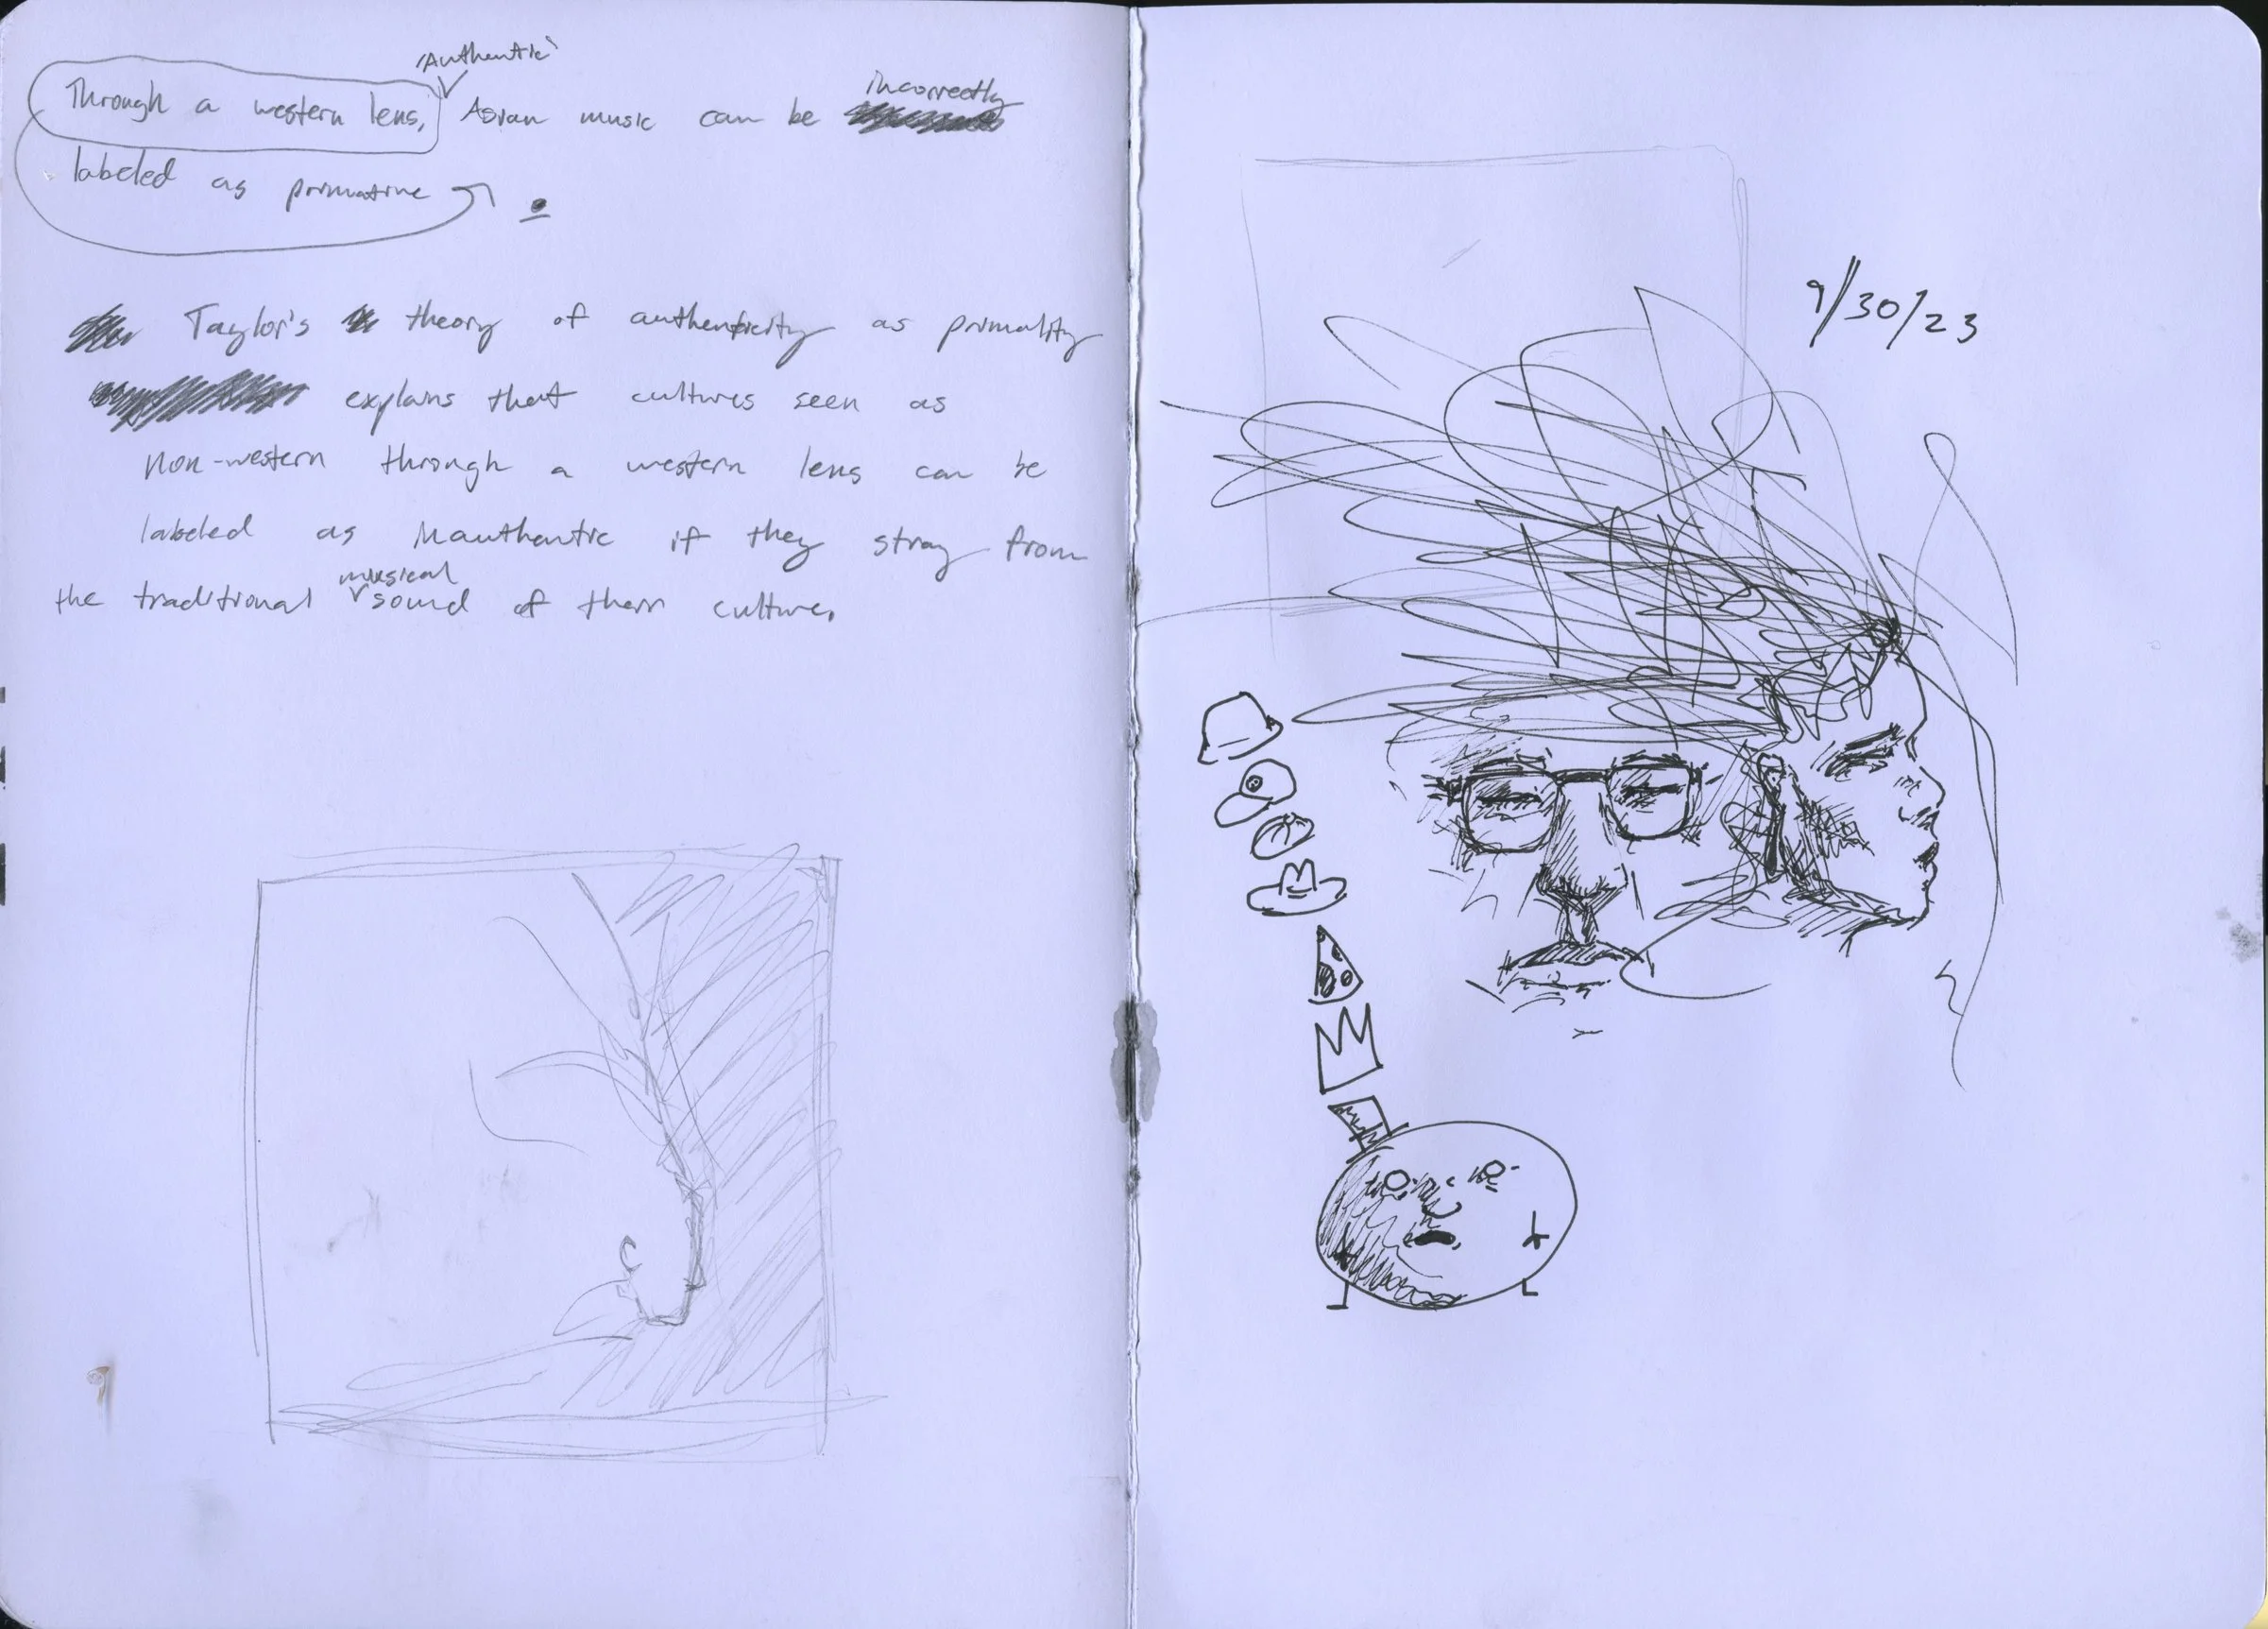 'Authentic'
Through a western lens, Asian music can be incorrectly
labeled as primative.
Taylor's theory of authenticity as primality
explains that cultures seen as
non-western through a western lens can be
labeled as inauthentic if they stray from
musical
the traditional sound of their culture.
9/30/23